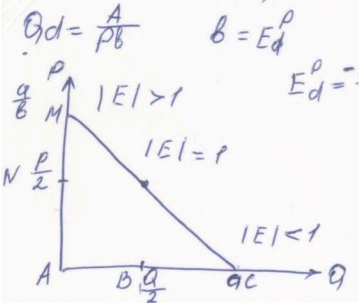 Qd = A/Pb
b = E_d^P
E_d^P = -
P
a/b M
|E| > 1
|E| = 1
N P/2
|E| < 1
A B a/2 a C Q